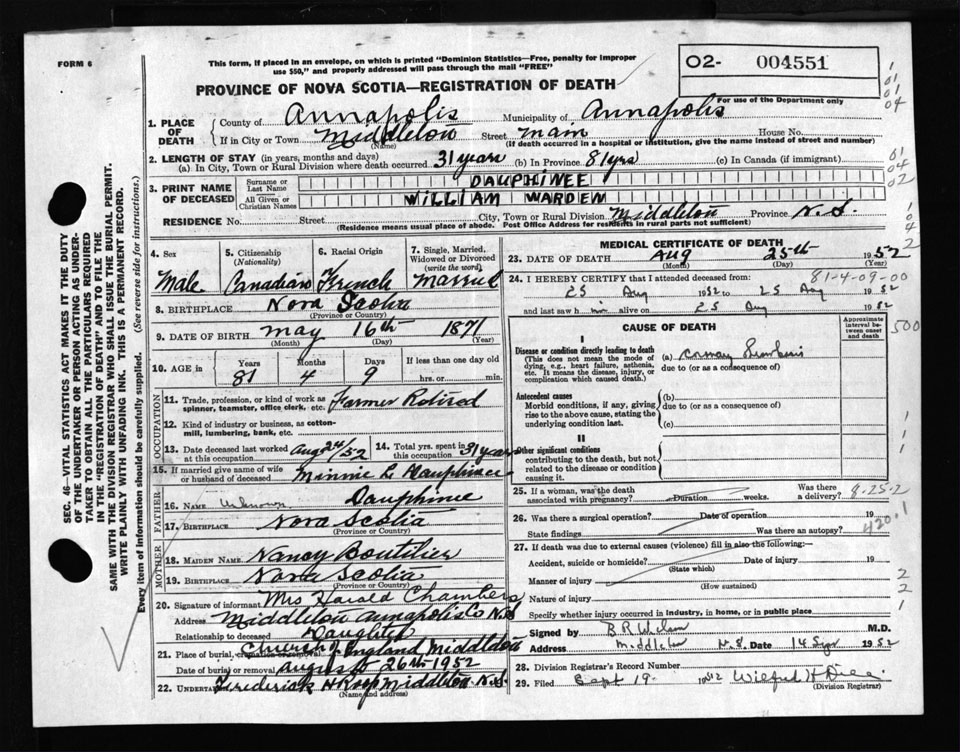 FORM 6
This form, if placed in an envelope, on which is printed "Dominion Statistics—Free, penalty for improper
use $50," and properly addressed will pass through the mail "FREE"
02- 004551
PROVINCE OF NOVA SCOTIA—REGISTRATION OF DEATH
For use of the Department only
1. PLACE OF DEATH
County of Annapolis Municipality of Annapolis
If in City or Town Middleton Street Main House No.
(Name) (If death occurred in a hospital or institution, give the name instead of street and number)
2. LENGTH OF STAY (in years, months and days)
(a) In City, Town or Rural Division where death occurred 31 years (b) In Province 81 yrs (c) In Canada (if immigrant)
3. PRINT NAME OF DECEASED
Surname or Last Name DAUPHINEE
All Given or Christian Names WILLIAM WARDEN
RESIDENCE No. Street City, Town or Rural Division Middleton Province N.S.
(Residence means usual place of abode. Post Office Address for residents in rural parts not sufficient)
4. Sex
Male
5. Citizenship
(Nationality)
Canadian
6. Racial Origin
French
7. Single, Married,
Widowed or Divorced
(write the word)
Married
8. BIRTHPLACE Nova Scotia
(Province or Country)
9. DATE OF BIRTH May 16th 1871
(Month) (Day) (Year)
10. AGE in Years Months Days If less than one day old
81 4 9 hrs. or min.
OCCUPATION
11. Trade, profession, or kind of work as
spinner, teamster, office clerk, etc. Farmer Retired
12. Kind of industry or business, as cotton-
mill, lumbering, bank, etc.
13. Date deceased last worked at this occupation Aug 24/52
14. Total yrs. spent in this occupation 31 years
15. If married give name of wife
or husband of deceased Minnie L Dauphinee
FATHER
16. Name Unknown Dauphinee
17. BIRTHPLACE Nova Scotia
MOTHER
18. MAIDEN NAME Nancy Boutilier
19. BIRTHPLACE Nova Scotia
(Province or Country)
20. Signature of informant Mrs Harold Chambers
Address Middleton Annapolis Co N.S
Relationship to deceased Daughter
21. Place of burial, cremation or removal Church of England, Middleton
Date of burial or removal August 26th 1952
22. UNDERTAKER Frederick H Roop Middleton N.S.
(Name and address)
MEDICAL CERTIFICATE OF DEATH
23. DATE OF DEATH Aug 25th 1952
(Month) (Day) (Year)
24. I HEREBY CERTIFY that I attended deceased from: 81-4-09-00
25 Aug 1952 to 25 Aug 1952
and last saw him alive on 25 Aug 1952
CAUSE OF DEATH
Approximate
interval be-
tween onset
and death
500
I
Disease or condition directly leading to death
(This does not mean the mode of
dying, e.g., heart failure, asthenia,
etc. It means the disease, injury, or
complication which caused death.)
(a)
due to (or as a consequence of)
Antecedent causes
Morbid conditions, if any, giving
rise to the above cause, stating the
underlying condition last.
(b)
due to (or as a consequence of)
(c)
II
Other significant conditions
contributing to the death, but not
related to the disease or condition
causing it.
25. If a woman, was the death
associated with pregnancy? Duration weeks. Was there
a delivery? 8-25-2
26. Was there a surgical operation? Date of operation 19
State findings Was there an autopsy? 420.1
27. If death was due to external causes (violence) fill in also the following:—
Accident, suicide or homicide? Date of injury 19
(State which)
Manner of injury
(How sustained)
Nature of injury
Specify whether injury occurred in industry, in home, or in public place
Signed by M.D.
Address Middleton N.S. Date 14 Sep 1952
28. Division Registrar's Record Number
29. Filed Sept 19 1952 Wilfred H
(Division Registrar)
SEC. 46—VITAL STATISTICS ACT MAKES IT THE DUTY
OF THE UNDERTAKER OR PERSON ACTING AS UNDER-
TAKER TO OBTAIN ALL THE PARTICULARS REQUIRED
IN THE "REGISTRATION OF DEATH" AND TO FILE THE
SAME WITH THE DIVISION REGISTRAR WHO SHALL ISSUE THE BURIAL PERMIT.
WRITE PLAINLY WITH UNFADING INK. THIS IS A PERMANENT RECORD.
Every item of information should be carefully supplied. (See reverse side for instructions.)